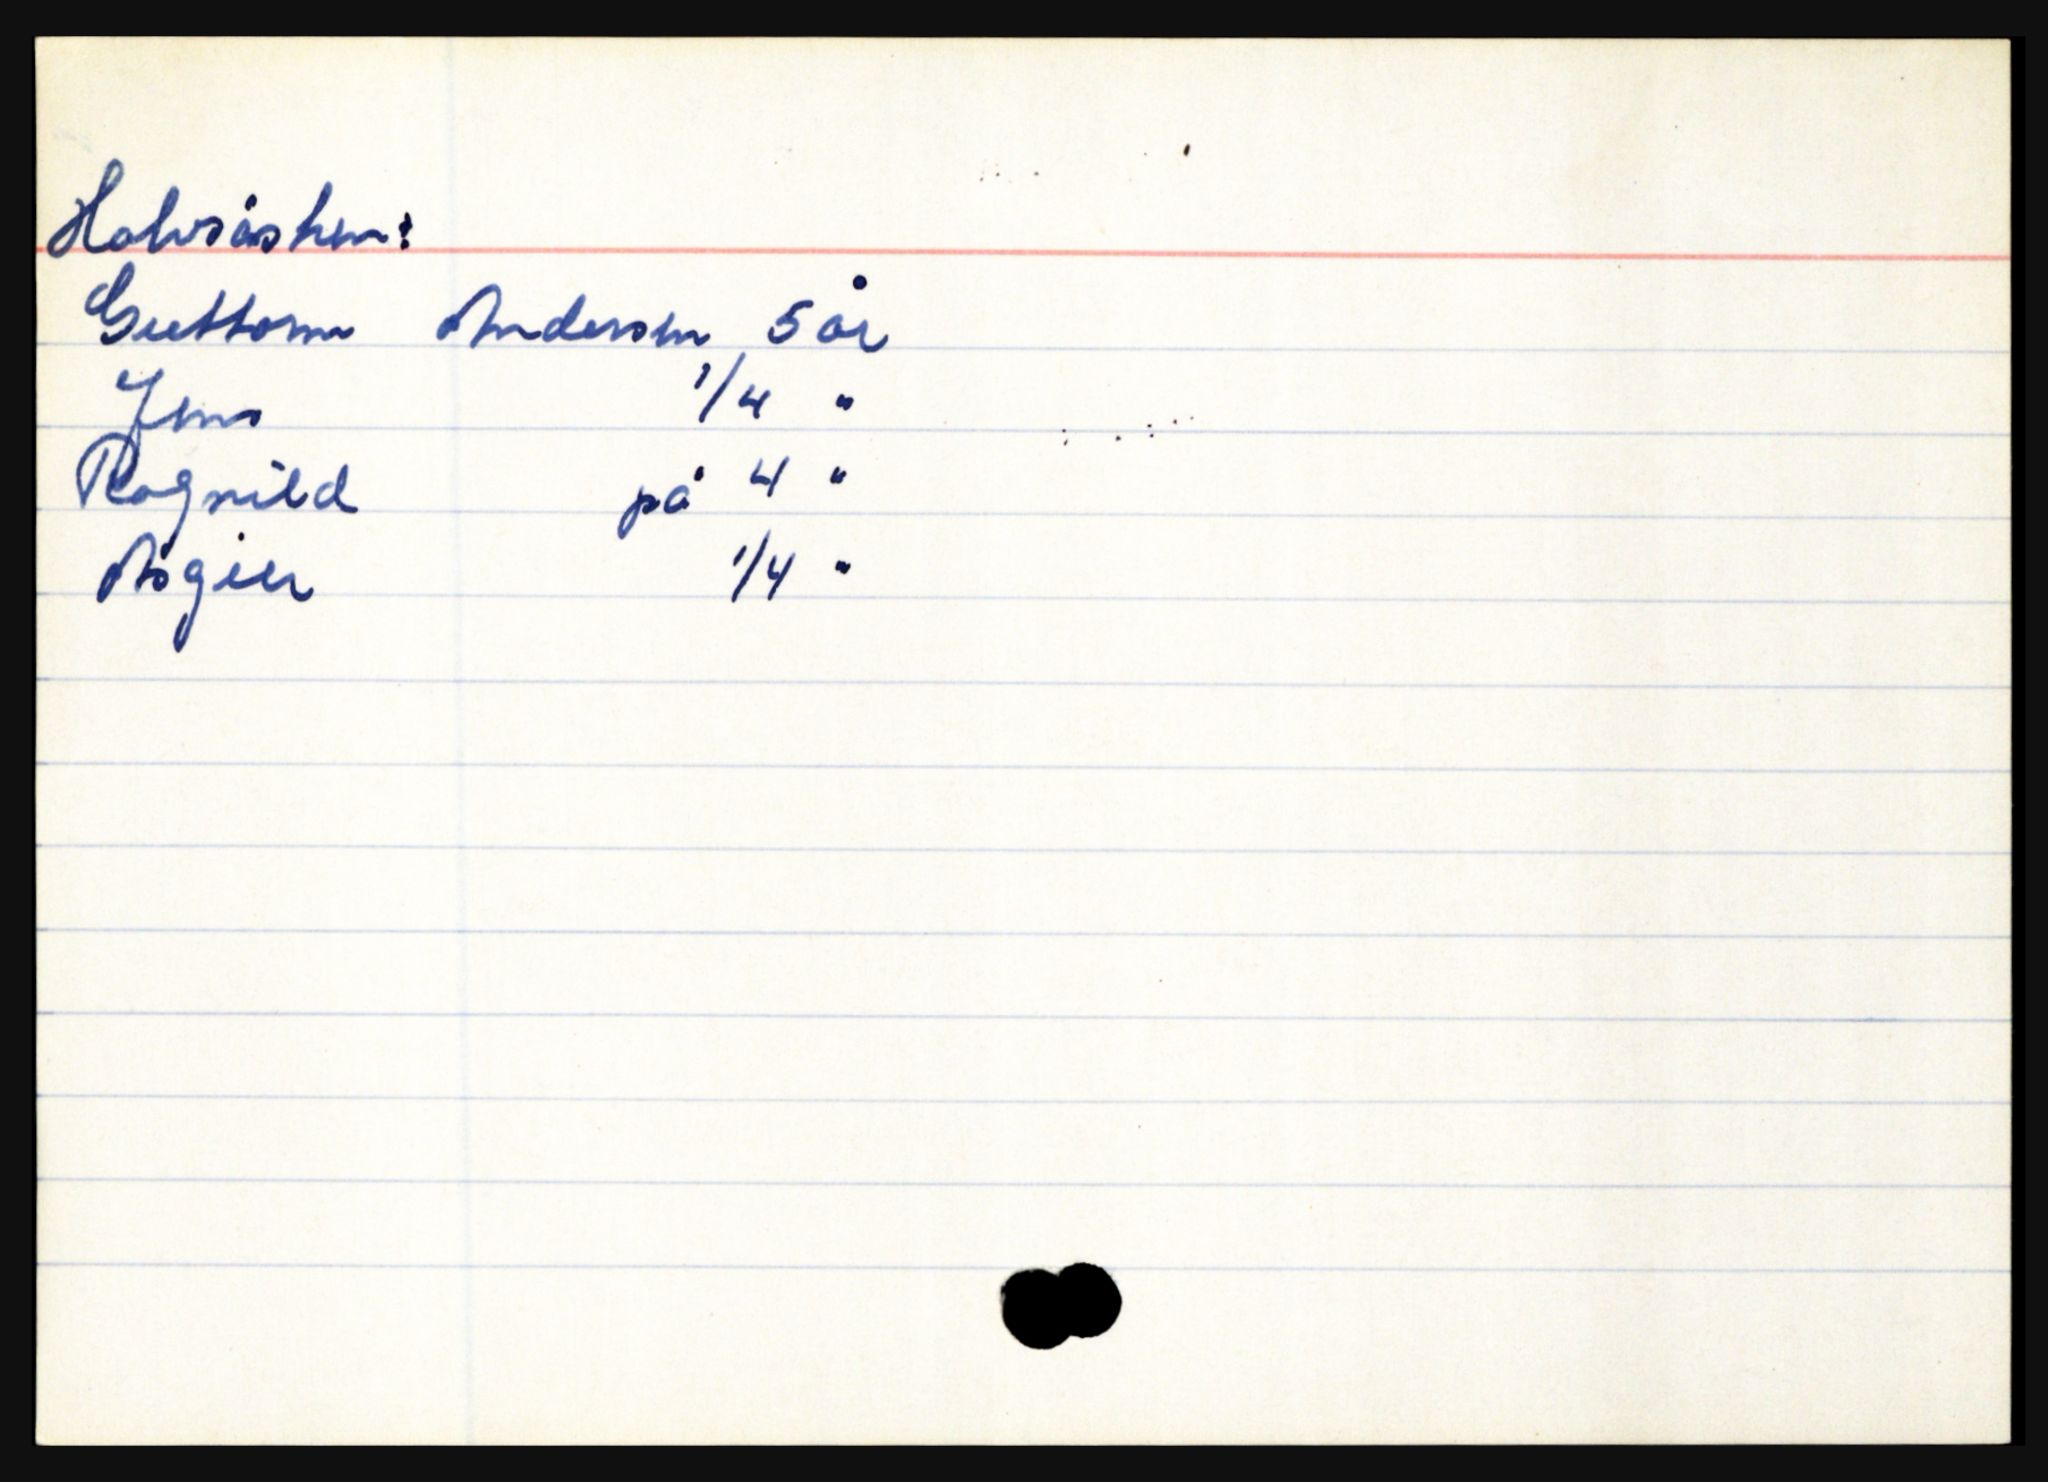 Halvsøsken:
Guttorm Andersen 5 år
Jens 1/4 "
Ragnild på 4 "
Asgier 1/4 "